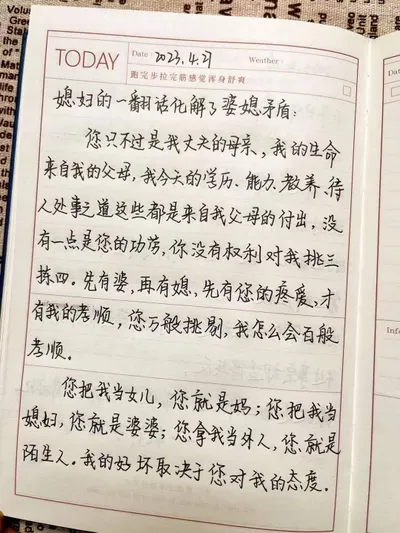 TODAY
Date: 2023.4.21
Weather:
跑完步拉完筋感觉浑身舒爽
媳妇的一番话化解了婆媳矛盾:
您只不过是我丈夫的母亲,我的生命
来自我的父母,我今天的学历、能力、教养、待
人处事之道这些都是来自我父母的付出,没
有一点是您的功劳,你没有权利对我挑三
拣四。先有婆,再有媳,先有您的疼爱,才
有我的孝顺,您万般挑剔,我怎么会百般
孝顺。
您把我当女儿,您就是妈;您把我当
媳妇,您就是婆婆;您拿我当外人,您就是
陌生人。我的好坏取决于您对我的态度。